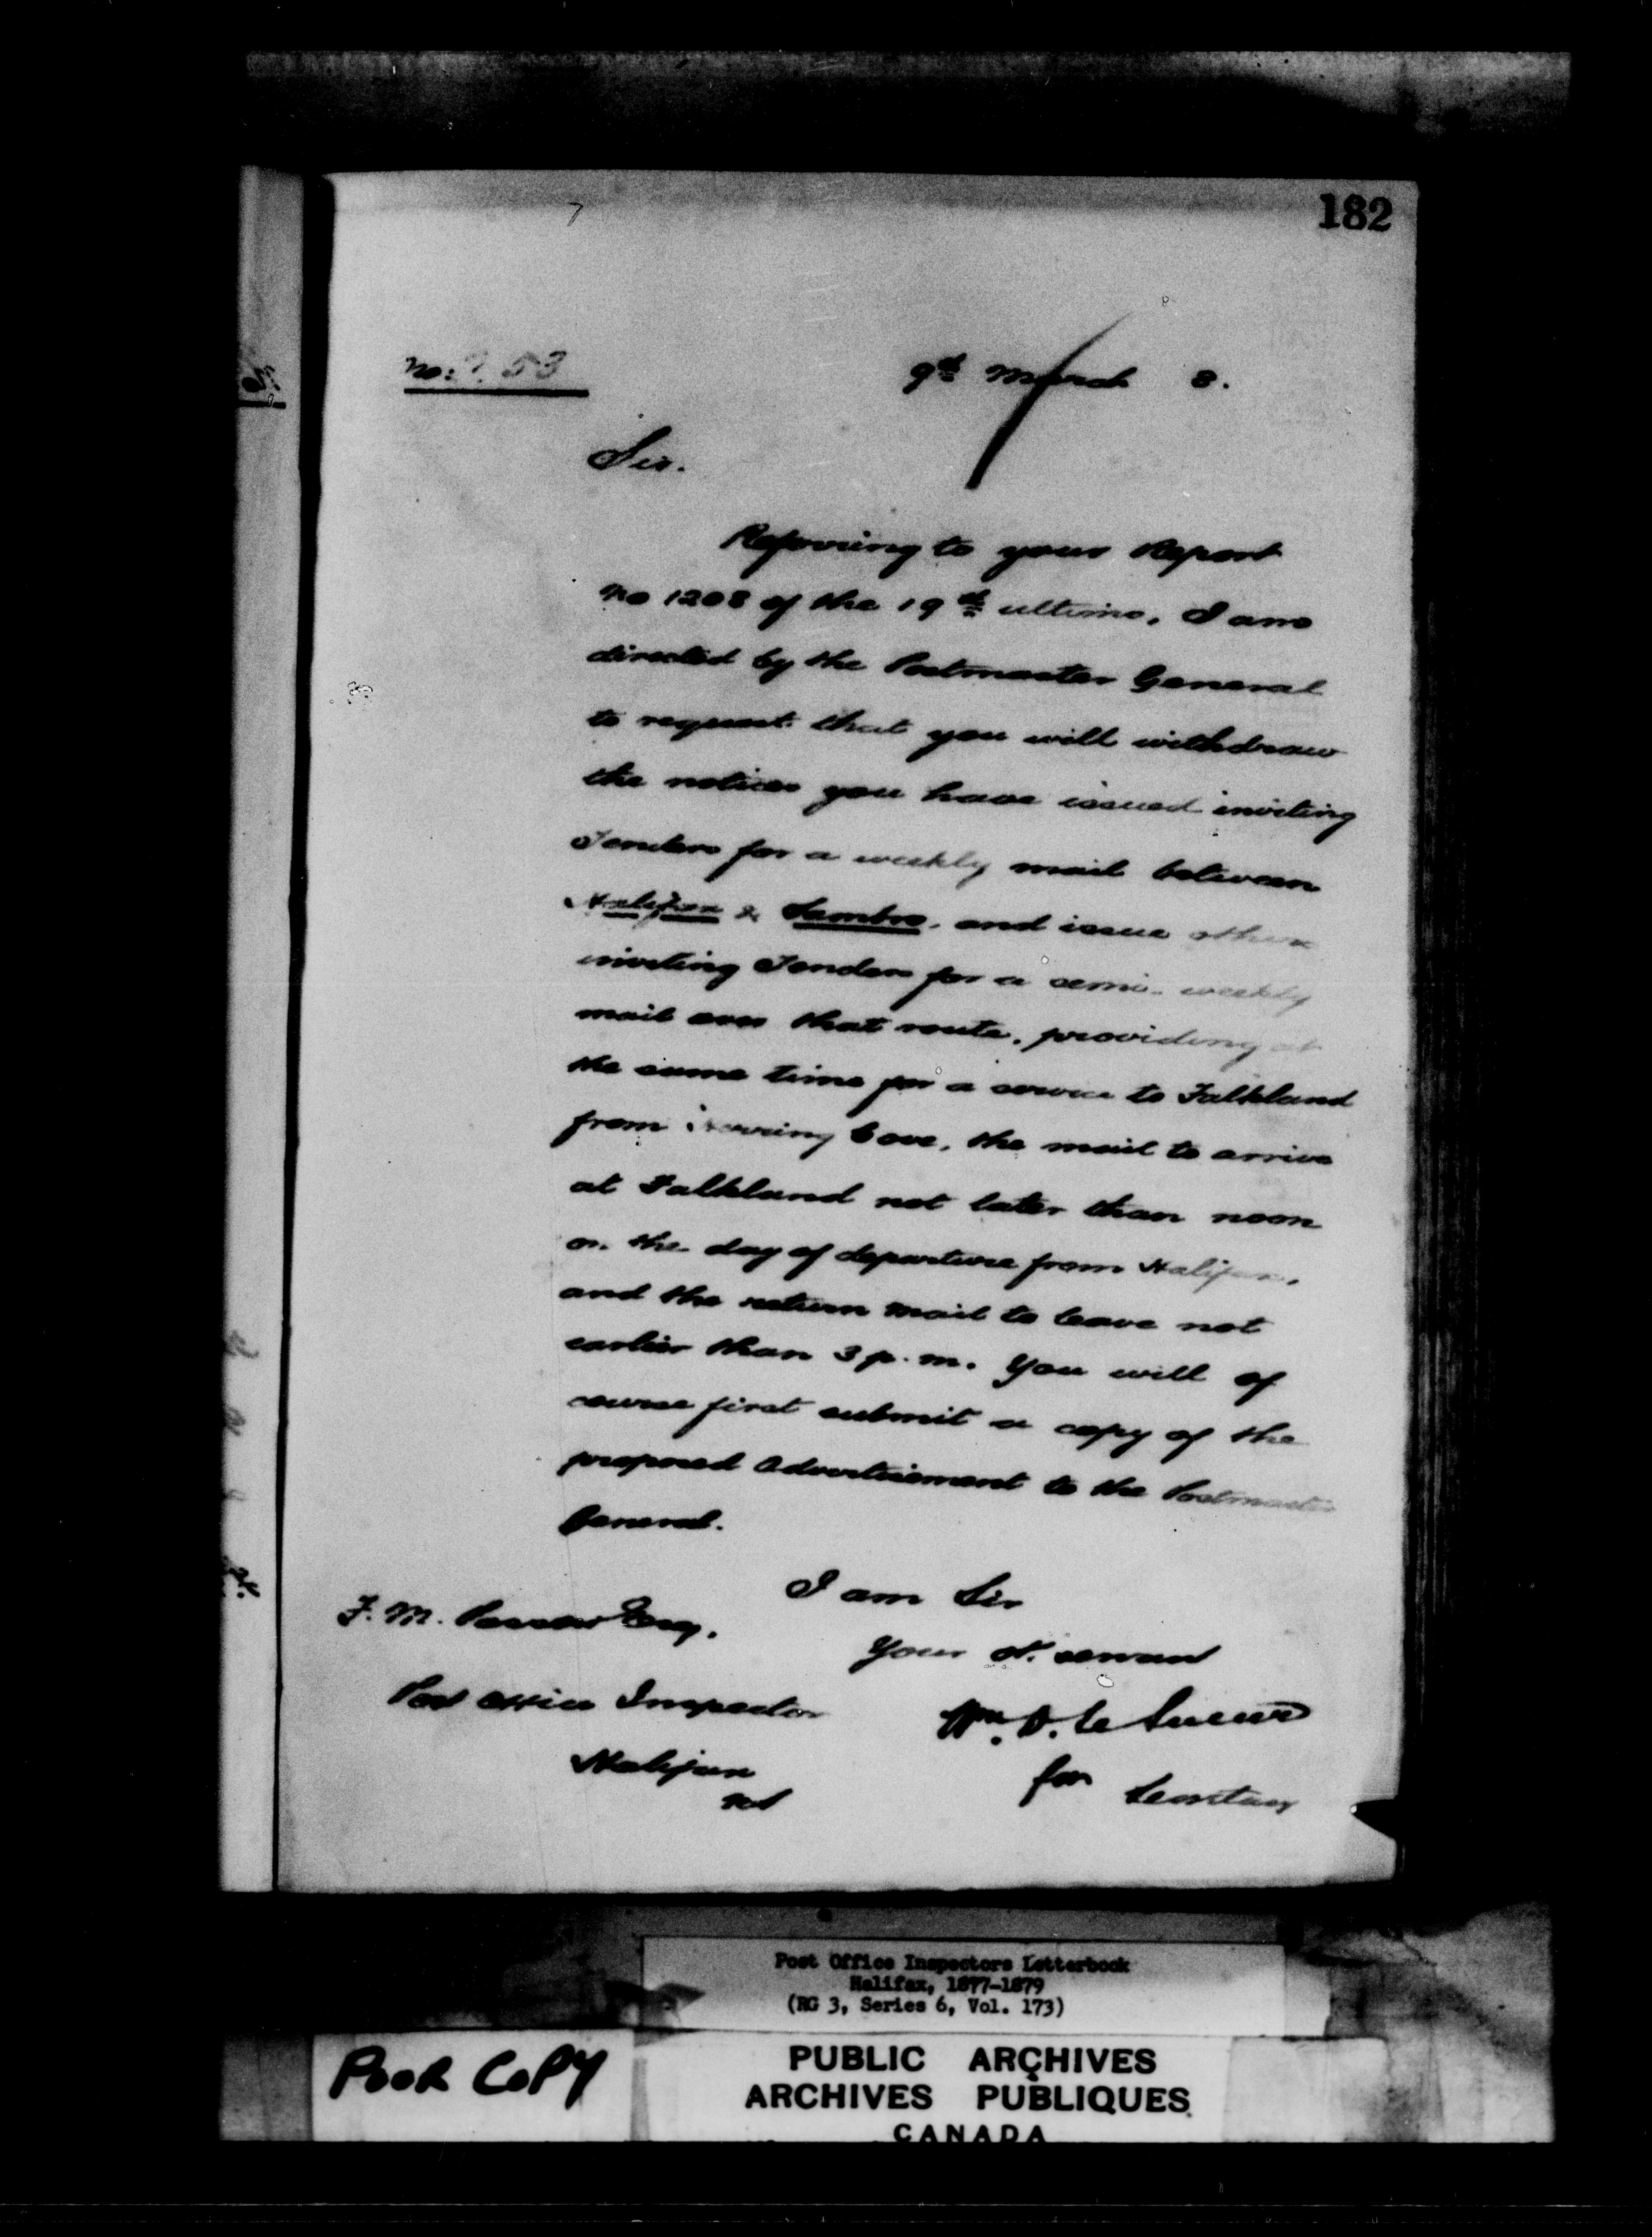 182
No: 53
9th March 8.
Sir.
Referring to your Report
No 1208 of the 19th ultimo, I am
directed by the Postmaster General
to request that you will withdraw
the notices you have issued inviting
Tenders for a weekly mail between
Halifax & Sambro, and issue others
inviting Tenders for a semi-weekly
mail over that route, providing at
the same time for a service to Falkland
from Herring Cove, the mail to arrive
at Falkland not later than noon
on the day of departure from Halifax,
and the return mail to leave not
earlier than 3 p.m. You will of
course first submit a copy of the
proposed Advertisement to the Postmaster
General.
I am Sir
Your ob. servant
Wm. D. Le Sueur
for Secretary
F. M. Passow Esq.
Post Office Inspector
Halifax
NS
Post Office Inspectors Letterbook
Halifax, 1877-1879
(RG 3, Series 6, Vol. 173)
POOR COPY
PUBLIC ARCHIVES
ARCHIVES PUBLIQUES
CANADA